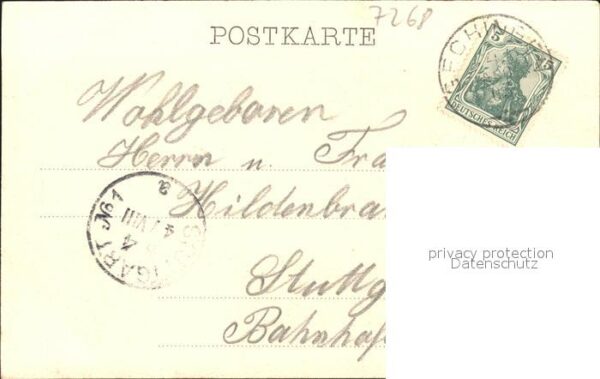 7268
POSTKARTE
ECHIN
5 5
DEUTSCHES REICH
Wohlgeboren
Herrn u. Fra
Hildenbra
Stuttg
Bahnhof
GART No 1
4 VII
privacy protection
Datenschutz